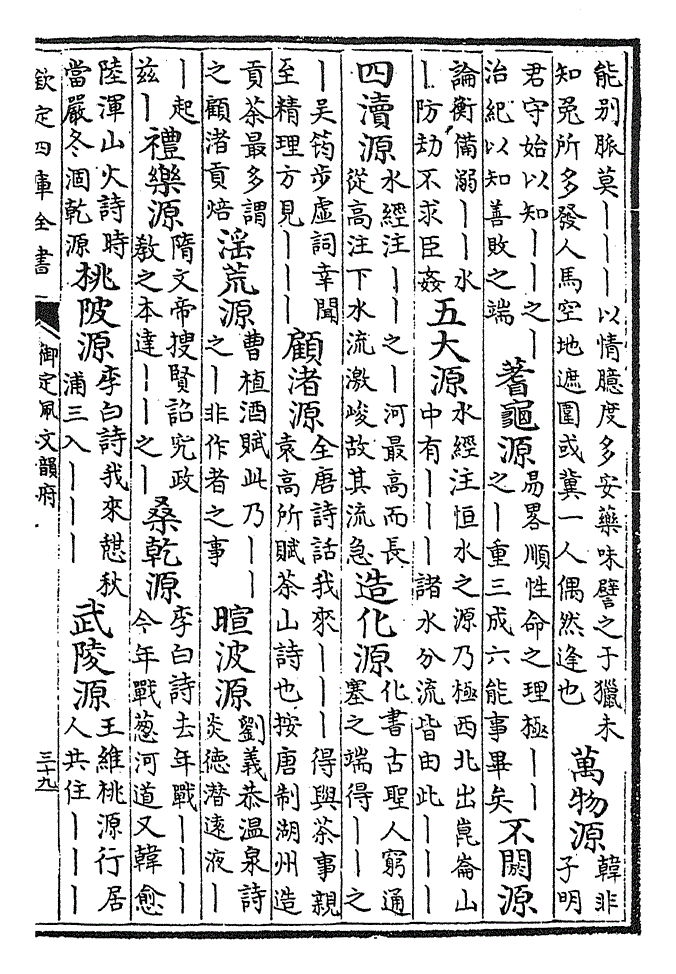 能别脈莫丨丨丨以情臆度多安藥味譬之于獵未知兎所多發人馬空地遮圍或冀一人偶然逢也萬物源韓非子明
君守始以知丨丨之丨治紀以知善敗之端蓍龜源易畧順性命之理極丨丨之丨重三成六能事畢矣不閼源
論衡備溺丨丨水丨防劫不求臣姦五大源水經注恒水之源乃極西北出崑崙山中有丨丨丨諸水分流皆由此丨丨丨
四瀆源水經注丨丨之丨河最高而長從高注下水流激峻故其流急造化源化書古聖人窮通塞之端得丨丨之
丨吳筠步虚詞幸聞至精理方見丨丨丨顧渚源全唐詩話我來丨丨丨得與茶事親袁高所賦茶山詩也按唐制湖州造
貢茶最多謂之顧渚貢焙滛荒源曹植酒賦此乃丨丨之丨非作者之事暄波源劉義恭温泉詩炎德潜遠液丨
丨起兹丨禮樂源隋文帝搜賢詔究政教之本達丨丨之丨桑乾源李白詩去年戰丨丨丨今年戰葱河道又韓愈
陸渾山火詩時當嚴冬涸乾源桃陂源李白詩我來憇秋浦三入丨丨丨武陵源王維桃源行居人共住丨丨丨
欽定四庫全書
御定佩文韻府
三十九